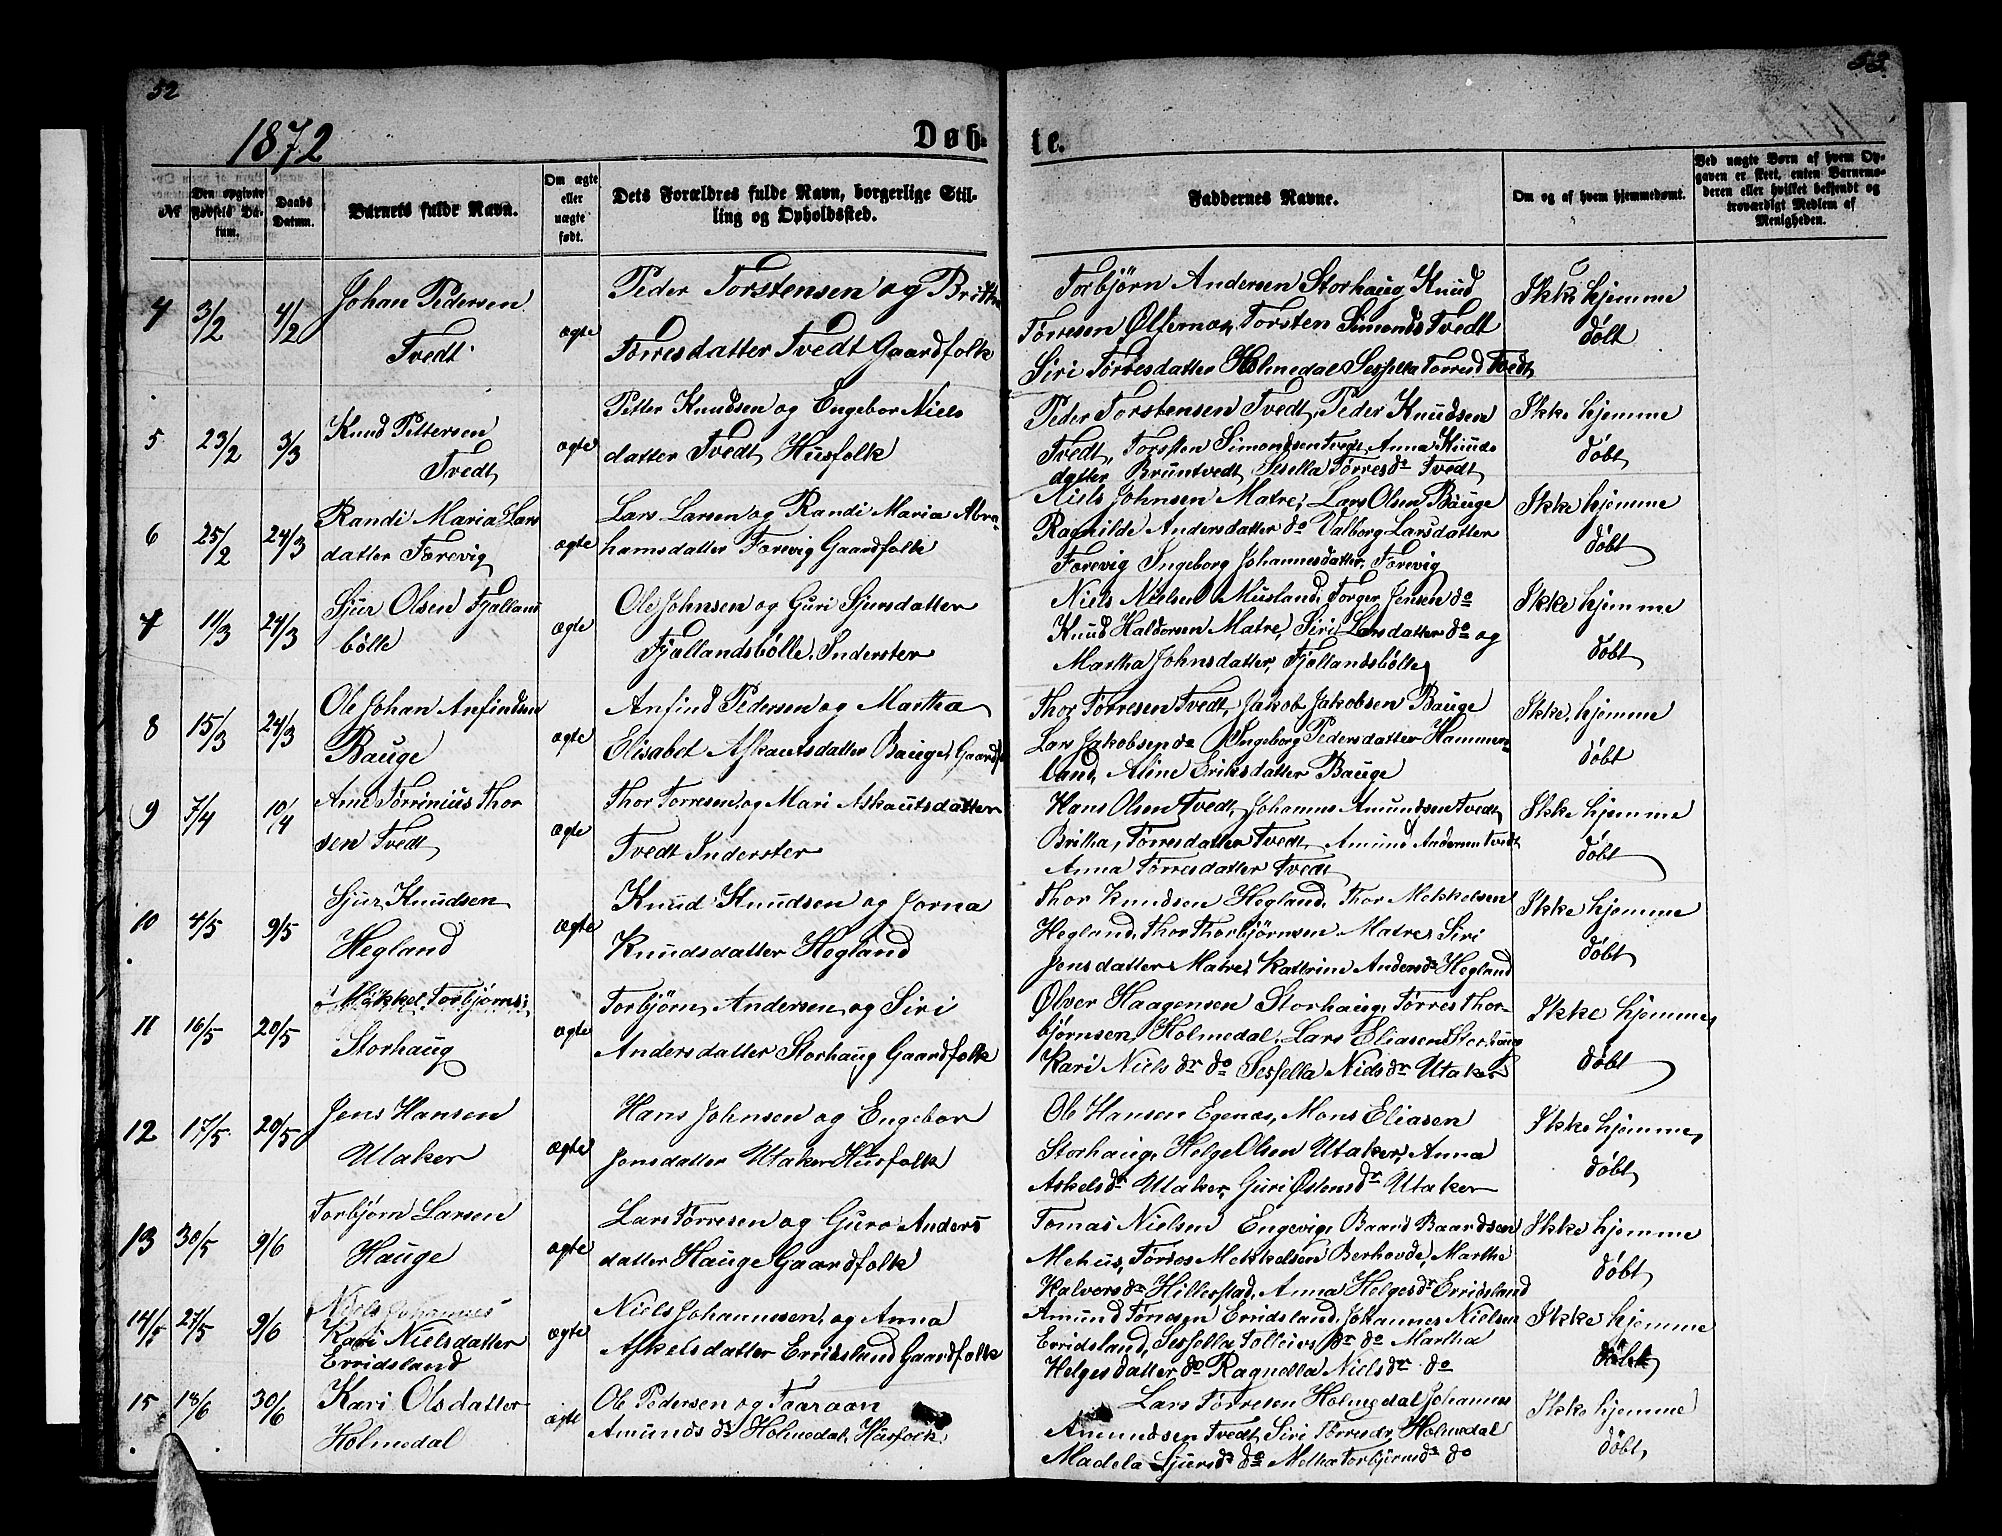 52
53.
1872
Døb-
te.
№
Den opgivne Fødsels Datum.
Daabs Datum.
Barnets fulde Navn.
Om ægte eller uægte født.
Dets Forældres fulde Navn, borgerlige Stilling og Opholdssted.
Faddernes Navne.
Om og af hvem hjemmedøbt.
Ved uægte Børn af hvem Opgaven er skeet, enten Barnemoderen eller hvilket bekjendt og troværdigt Medlem af Menigheden.
4 3/2 4/2
Johan Pedersen
Tvedt
ægte
Peder Torstensen og Britha
Tørresdatter Tvedt Gaardfolk
Torbjörn Andersen Storhaug, Knud
Tørresen Ølfernæs, Torsten Simonds Tvedt
Siri Tørresdatter Holmedal Sessella Torresd Tvedt
Ikke hjemme
døbt
5 23/2 3/3
Knud Pettersen
Tvedt
ægte
Petter Knudsen og Engebor Niels
datter Tvedt, Husfolk
Peder Torstensen Tvedt, Peder Knudsen
Tvedt, Torsten Simondsen Tvedt, Anna Knuds
datter Bruntvedt, Sesella Tørresdr Tvedt
Ikke hjemme
døbt
6 25/2 24/3
Randi Maria Lars
datter Forevig
ægte
Lars Larsen og Randi Maria Abra-
hamsdatter Forevig Gaardfolk
Niels Johnsen Matre, Lars Olsen Bauge
Ragnilde Andersdatter do Valborg Larsdatter
Forevig Ingeborg Johannesdatter, Forevig
Ikke hjemme
døbt
7 11/3 24/3
Sjur Olsen Fjellands
bölle
ægte
Ole Johnsen og Guri Sjursdatter
Fjællandsbölle, Inderster
Niels Nielsen Musland, Torger Jensen do
Knud Haldorsen Matre, Siri Larsdatter do og
Martha Johnsdatter, Fjællandsbölle
Ikke hjemme
døbt
8 15/3 24/3
Ole Johan Anfindsen
Bauge
ægte
Anfind Pedersen og Martha
Elisabet Askautsdatter Bauge, Gaardf
Thor Tørresen Tvedt, Jakob Jakobsen Bauge
Lars Jakobsen do Ingeborg Pedersdatter Hammer-
land, Aline Eriksdatter Bauge
Ikke hjemme
døbt
9 7/4 10/4
Arne Törrinius Thor
sen Tvedt
ægte
Thor Torresen og Mari Askautsdatter
Tvedt Inderster
Hans Olsen Tvedt, Johannes Amundsen Tvedt
Britha, Tørresdatter Tvedt, Amund Andersen Tvedt
Anna Tørresdatter Tvedt
Ikke hjemme
døbt
10 4/5 9/5
Sjur Knudsen
Hegland
ægte
Knud Knudsen og Jorna
Knudsdatter Hegland
Thor Knudsen Hegland, Thor Mekkelsen
Hegland, Thor Thorbjørnsen Matre, Siri
Jensdatter Matre, Kathrine Andersdr Hegland
Ikke hjemme
døbt
11 16/5 20/5
Mikkel Torbjørns:
Storhaug
ægte
Torbjörn, Andersen og Siri
Andersdatter Storhaug Gaardfolk
Ölver Haagensen Storhaug, Tørres Thor-
bjørnsen, Holmedal, Lars Eliasen Storhaug
Kari Niels dr do Sessella Nielsdr Utaker
Ikke hjemme
døbt
12 17/5 20/5
Jens Hansen
Utaker
ægte
Hans Johnsen og Engebor
Jonsdatter Utaker Husfolk
Ole Hansen Egenæs, Mons Eliasen
Storhaug, Helge Olsen Utaker, Anna
Askelsdr Utaker, Guri Östensdr Utaker
Ikke hjemme
døbt
13 30/5 9/6
Torbjørn Larsen
Hauge
ægte
Lars Tørresen og Guro Anders
datter Hauge Gaardfolk
Tomas Nielsen Engevig, Baard Baardsen
Mehus, Tørres Mekkelsen Berhovde, Marthe
Halvorsdr Hillerstad, Anna Helgesdr Erridsland
Ikke hjemme
døbt
14/5 27/5 9/6
Niels Johannes
Kari Nielsdatter
Erridsland
ægte
Niels Johannessen, og Anna
Askelsdatter Erridsland Gaardfolk
Amund Erridsland, Johannes Nielsen
Erridsland, Sessella Tolleivs dr do Martha
Helgesdatter do Ragnella Nielsdr do
Ikke hjemme
døbt
15 18/6 30/6
Kari Olsdatter
Holmedal
ægte
Ole Pedersen og Taaraan
Amunds dr Holmedal, Husfolk
Lars Tørresen Holmedal Johannes
Amundsen Tvedt, Siri Tørresdr, Holmedal
Madela Sjursdr do Metha Torbjørnsdr do
Ikke hjemme
døbt